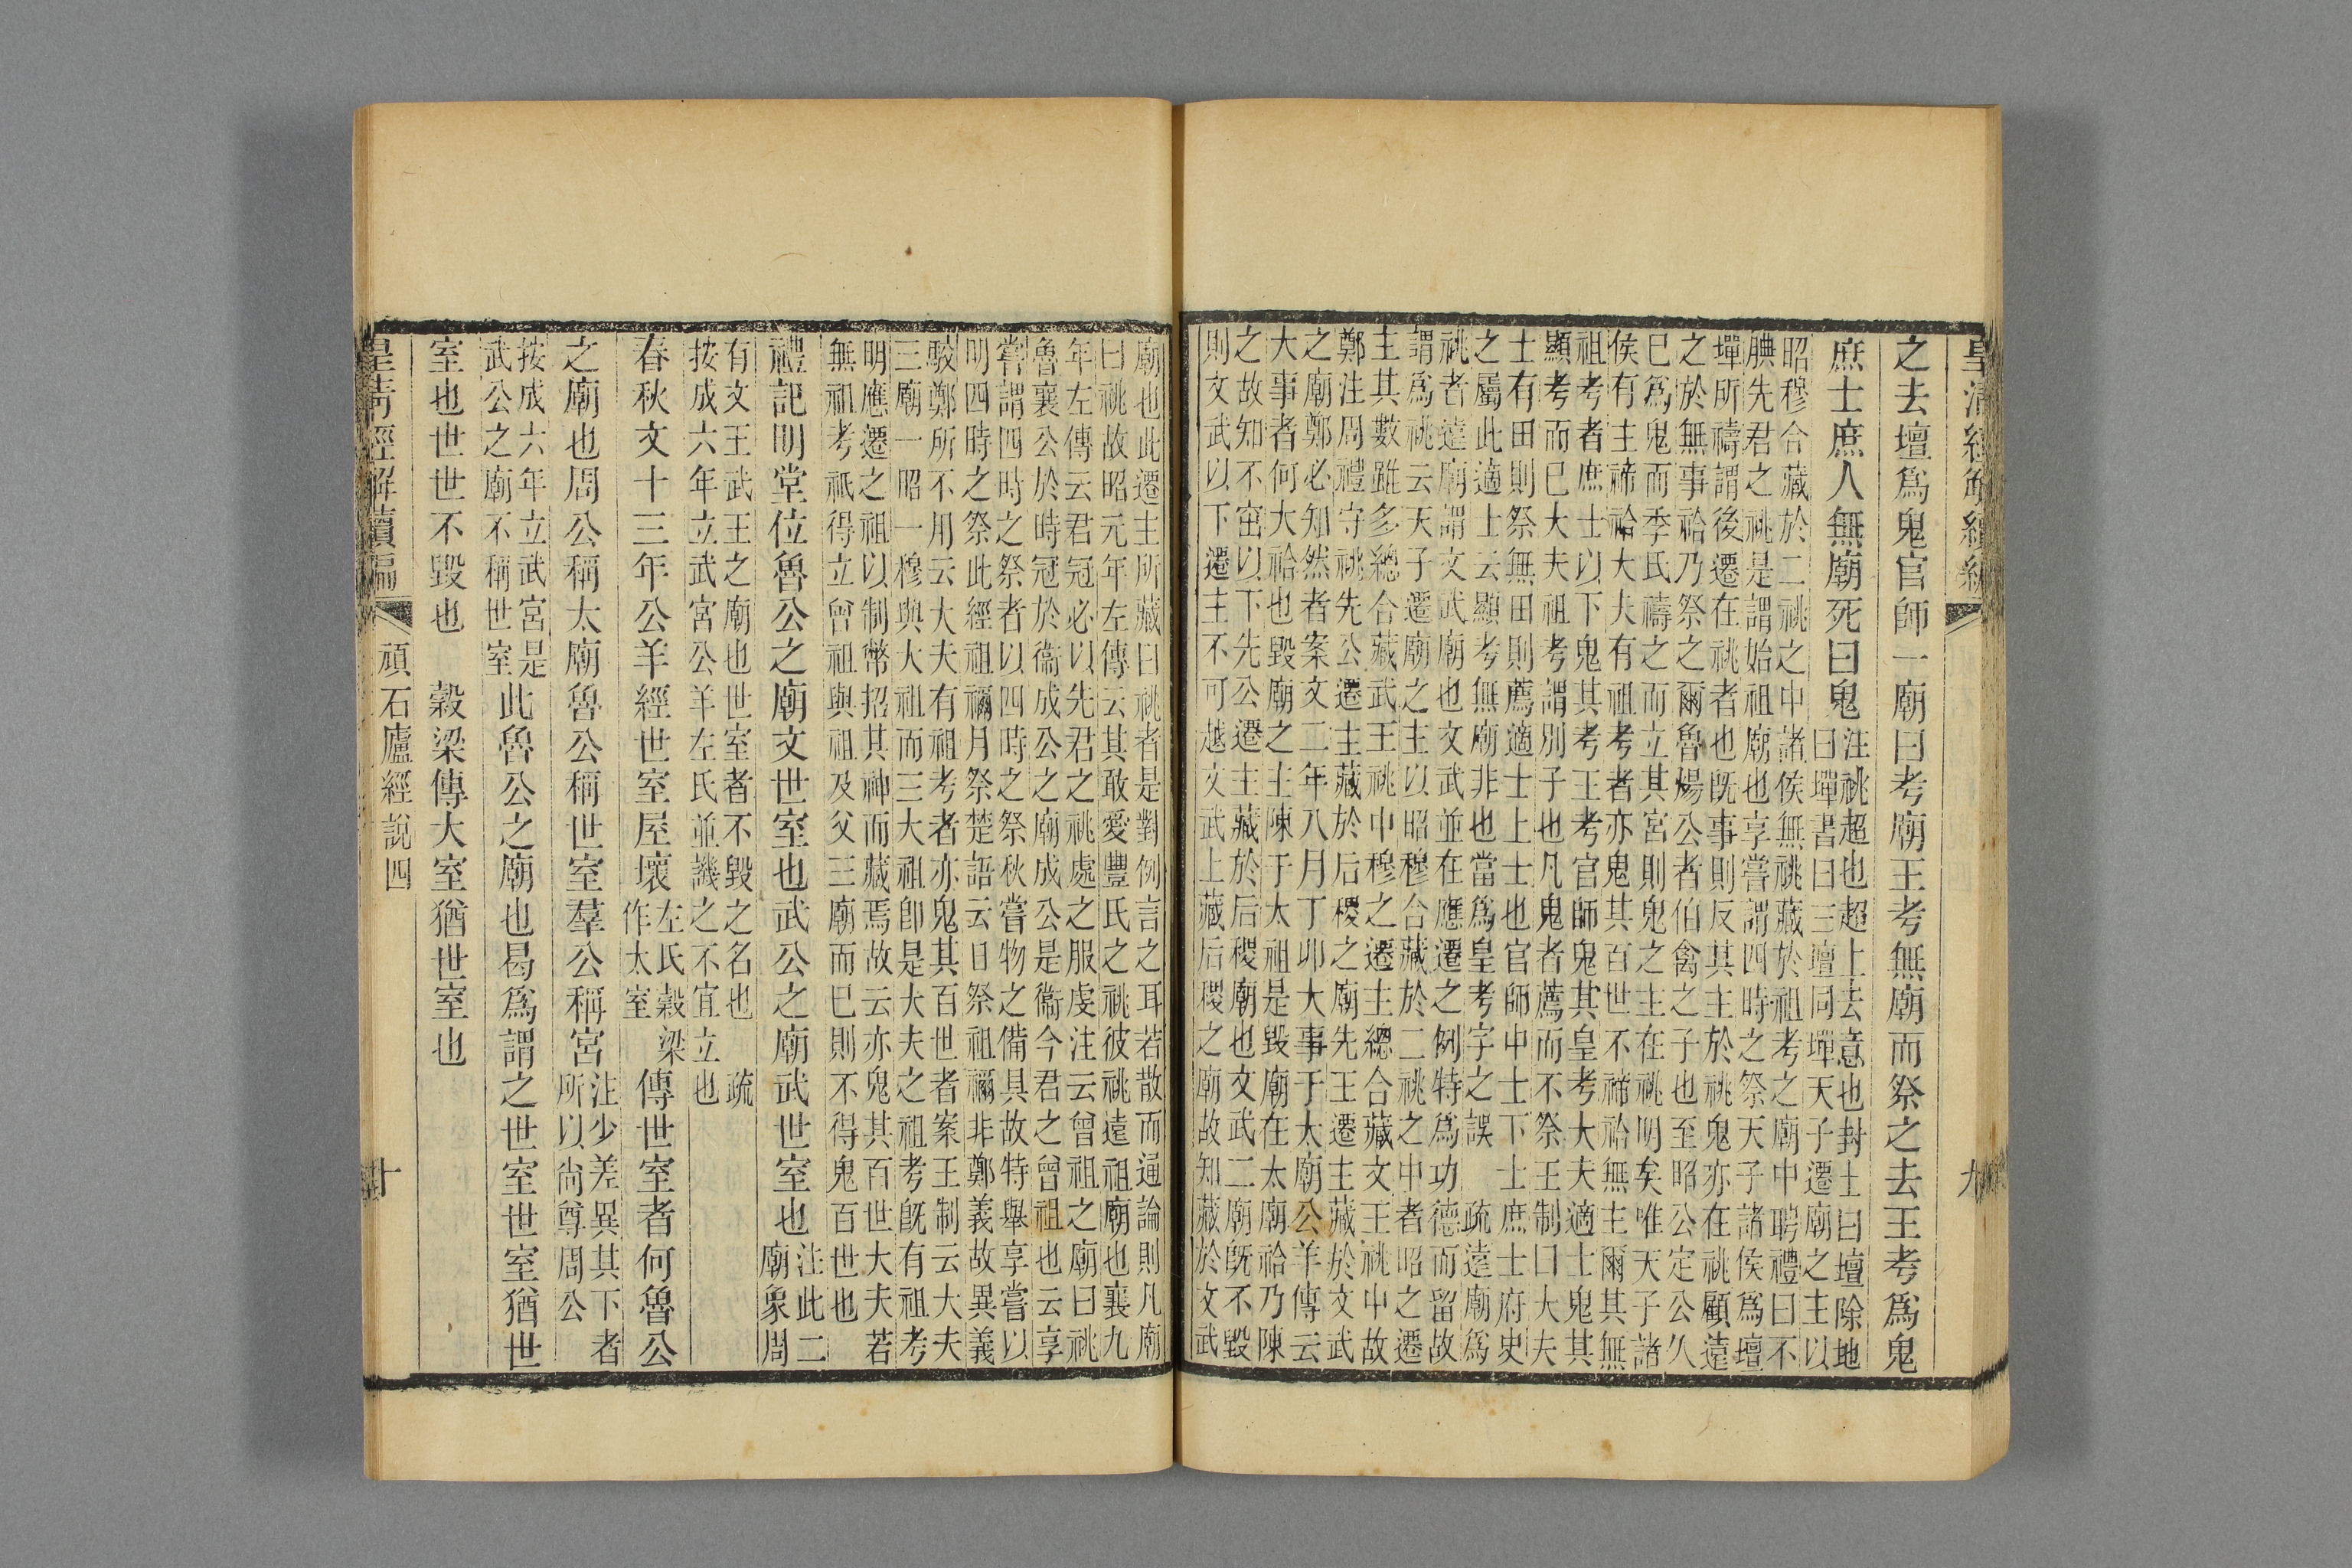 皇清經解續編
九
之去壇爲鬼官師一廟曰考廟王考無廟而祭之去王考爲鬼
庶士庶人無廟死曰鬼
注祧超也超上去意也封土曰壇除地
曰墠書曰三壇同墠天子遷廟之主以
昭穆合藏於二祧之中諸侯無祧藏於祖考之廟中聘禮曰不
腆先君之祧是謂始祖廟也享嘗謂四時之祭天子諸侯爲壇
墠所禱謂後遷在祧者也旣事則反其主於祧鬼亦在祧顧遠
之於無事祫乃祭之爾魯煬公者伯禽之子也至昭公定公久
已爲鬼而季氏禱之而立其宮則鬼之主在祧明矣唯天子諸
侯有主禘祫大夫有祖考者亦鬼其百世不禘祫無主爾其無
祖考者庶士以下鬼其考王考官師鬼其皇考大夫適士鬼其
顯考而已大夫祖考謂別子也凡鬼者薦而不祭王制曰大夫
士有田則祭無田則薦適士上士也官師中士下士庶士府史
之屬此適士云顯考無廟非也當爲皇考字之誤　疏遠廟爲
祧者遠廟謂文武廟也文武並在應遷之例特爲功德而留故
謂爲祧云天子遷廟之主以昭穆合藏於二祧之中者昭之遷
主其數雖多總合藏武王祧中穆之遷主總合藏文王祧中故
鄭注周禮守祧先公遷主藏於后稷之廟先王遷主藏於文武
之廟鄭必知然者案文二年八月丁卯大事于太廟公羊傳云
大事者何大祫也毀廟之主陳于太祖是毀廟在太廟祫乃陳
之故知不窋以下先公遷主藏於后稷廟也文武二廟旣不毀
則文武以下遷主不可越文武上藏后稷之廟故知藏於文武
廟也此遷主所藏曰祧者是對例言之耳若散而通論則凡廟
曰祧故昭元年左傳云其敢愛豐氏之祧彼祧遠祖廟也襄九
年左傳云君冠必以先君之祧處之服虔注云曾祖之廟曰祧
魯襄公於時冠於衞成公之廟成公是衞今君之曾祖也云享
嘗謂四時之祭者以四時之祭秋嘗物之備具故特舉享嘗以
明四時之祭此經祖禰月祭楚語云日祭祖禰非鄭義故異義
駮鄭所不用云大夫有祖考者亦鬼其百世者案王制云大夫
三廟一昭一穆與大祖而三大祖卽是大夫之祖考旣有祖考
明應遷之祖以制幣招其神而藏焉故云亦鬼其百世大夫若
無祖考祇得立曾祖與祖及父三廟而已則不得鬼百世也
禮記明堂位魯公之廟文世室也武公之廟武世室也
注此二
廟象周
有文王武王之廟也世室者不毀之名也　疏
按成六年立武宮公羊左氏並譏之不宜立也
春秋文十三年公羊經世室屋壞
左氏穀梁
作太室
傳世室者何魯公
之廟也周公稱太廟魯公稱世室羣公稱宮
注少差異其下者
所以尚尊周公
按成六年立武宮是
武公之廟不稱世室
此魯公之廟也曷爲謂之世室世室猶世
室也世世不毀也　穀梁傳大室猶世室也
皇清經解續編
頑石廬經說四
十